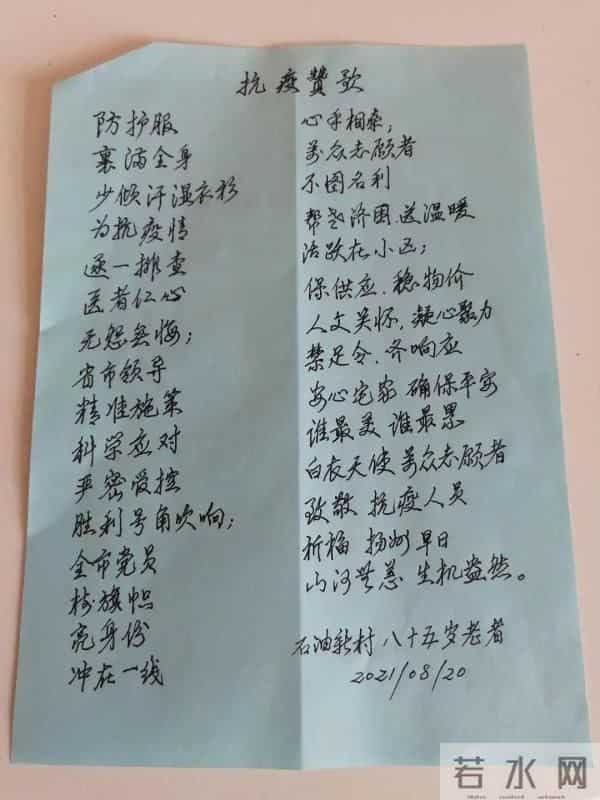 抗疫赞歌
防护服
裹满全身
少倾汗湿衣衫
为抗疫情
逐一排查
医者仁心
无怨无悔；
省市领导
精准施策
科学应对
严密受控
胜利号角吹响；
全市党员
树旗帜
亮身份
冲在一线
心手相牵，
万众志愿者
不图名利
帮老济困.送温暖
活跃在小区；
保供应.稳物价
人文关怀，凝心聚力
禁足令.齐响应
安心宅家 确保平安
谁最美 谁最累
白衣天使 万众志愿者
致敬 抗疫人员
祈福 扬州早日
山河无恙 生机盎然。
石油新村 八十五岁老者
2021/08/20
若水网